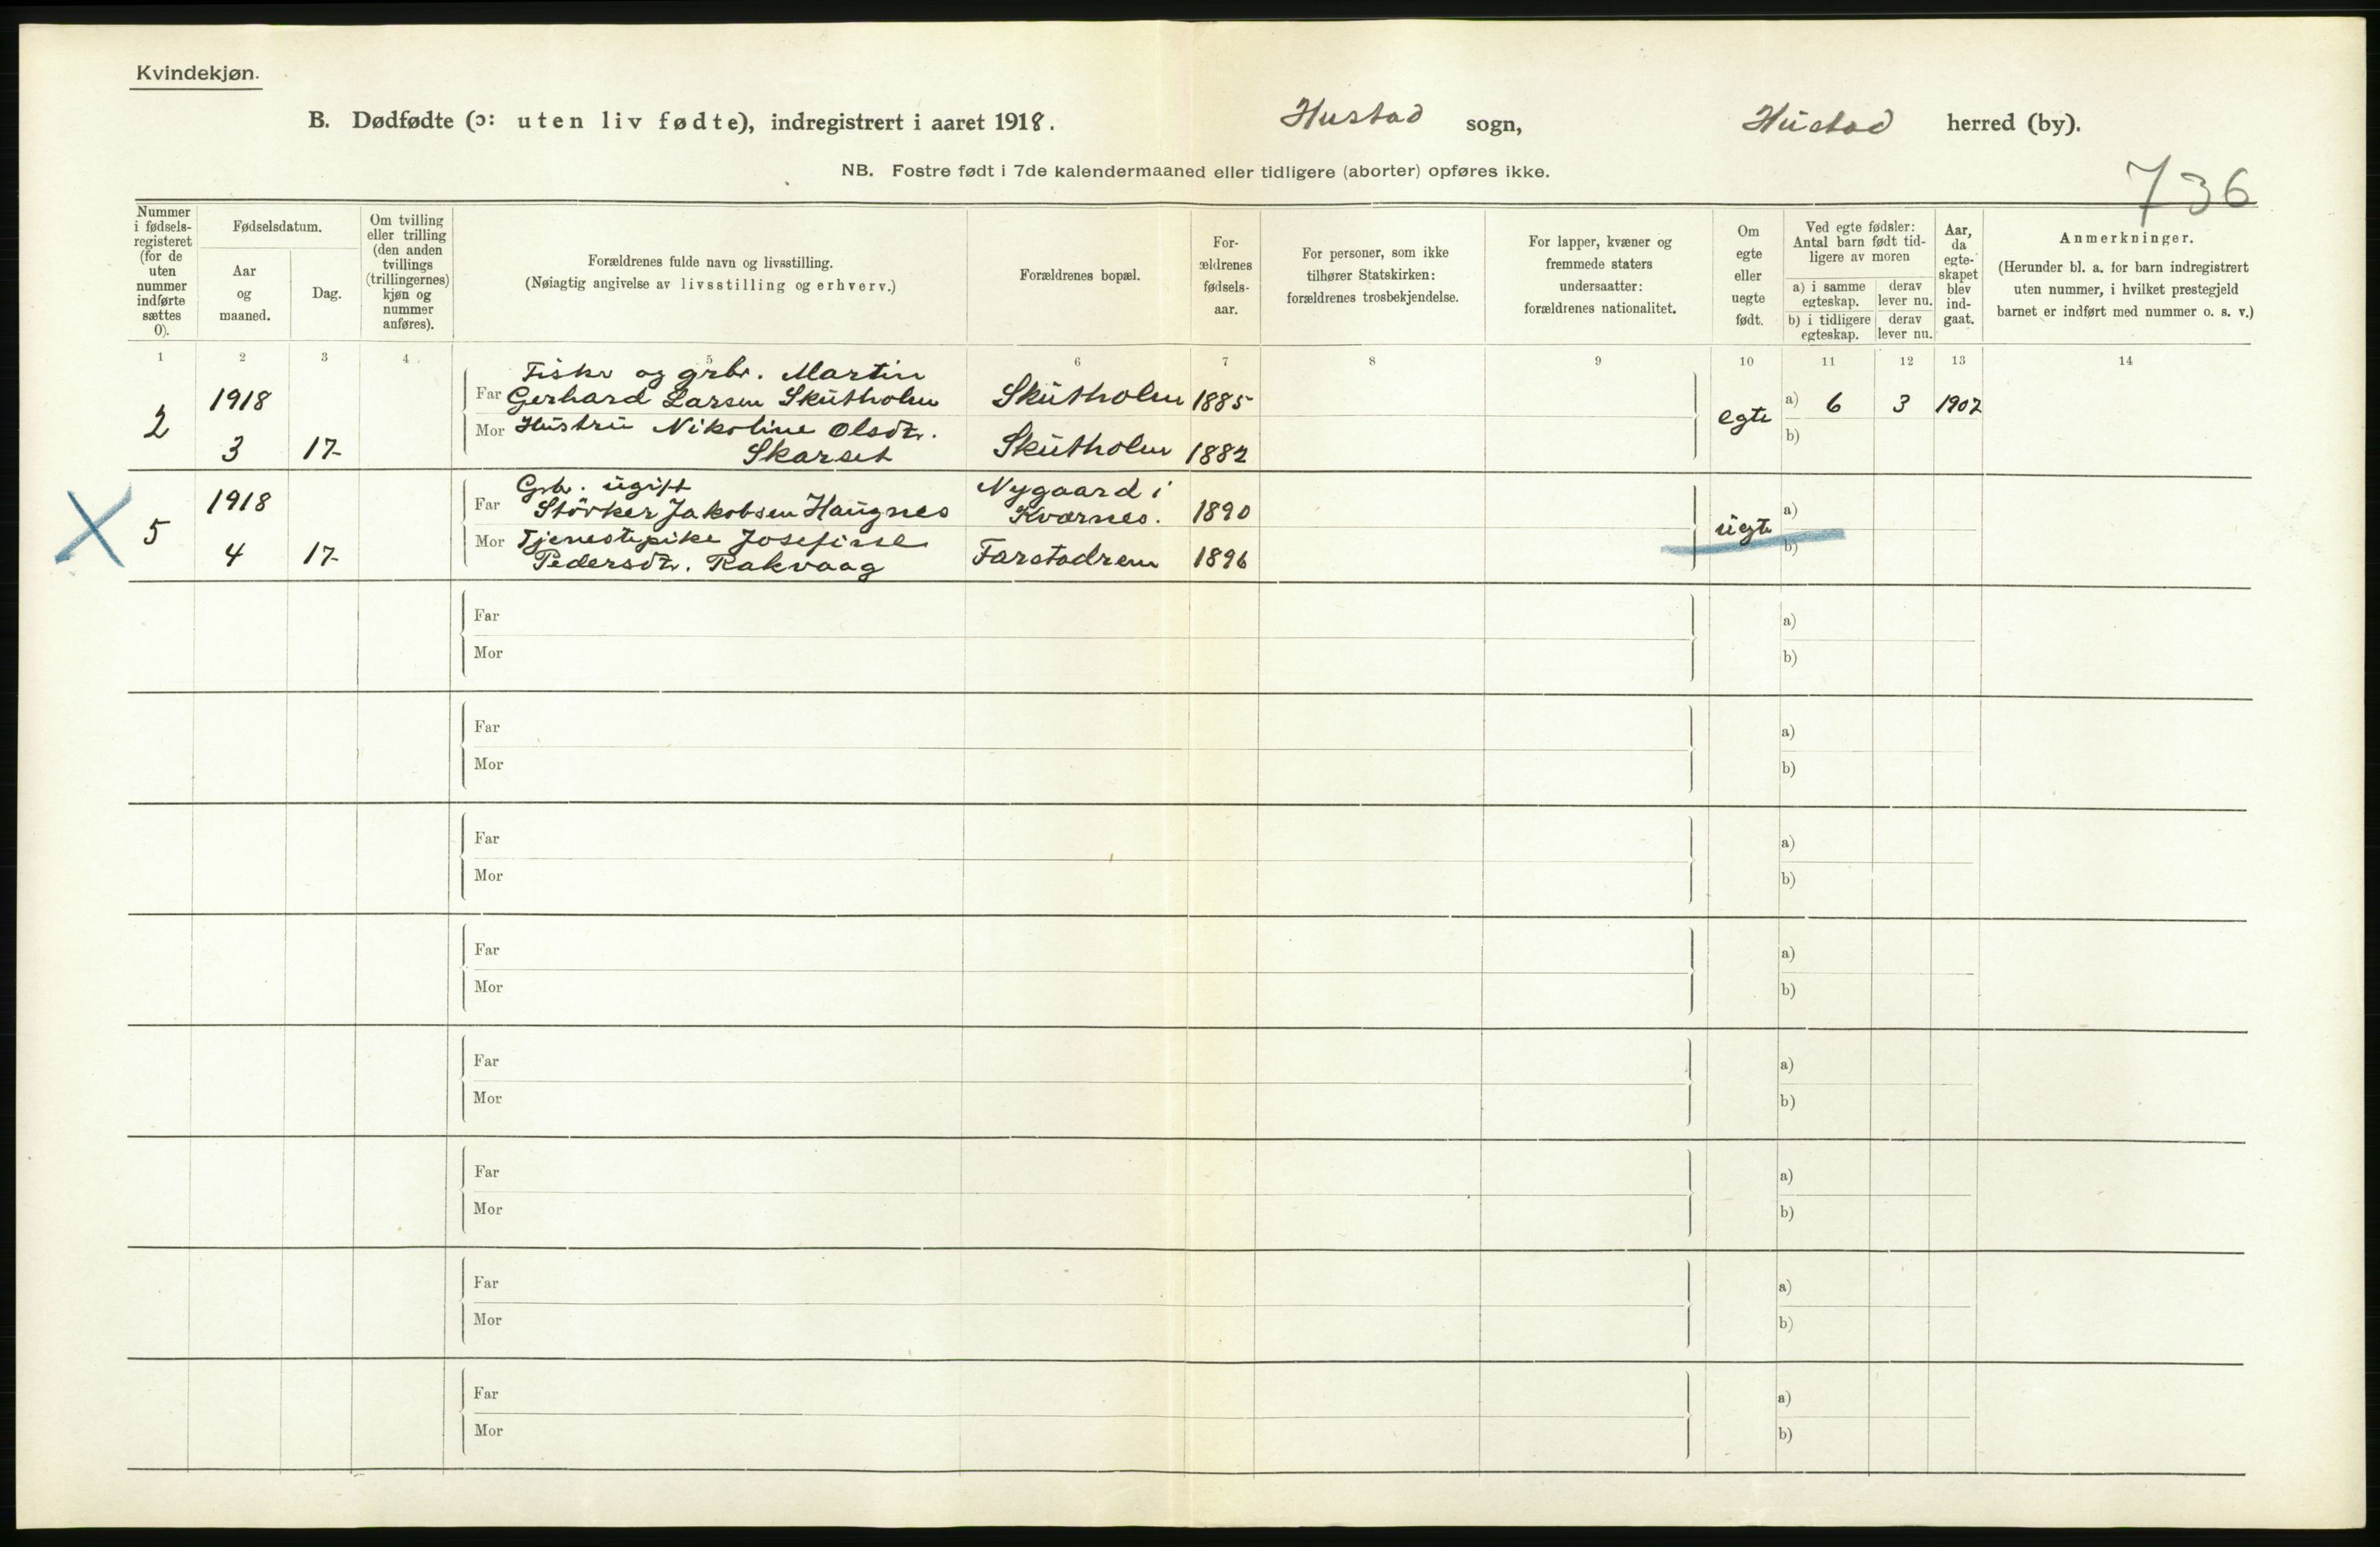 Kvindekjøn.
B. Dødfødte (ɔ: uten liv fødte), indregistrert i aaret 1918. Hustad sogn, Hustad herred (by).
NB. Fostre født i 7de kalendermaaned eller tidligere (aborter) opføres ikke.
736
Nummer i fødsels-registeret (for de uten nummer indførte sættes 0).
Fødselsdatum.
Aar og maaned.
Dag.
Om tvilling eller trilling (den anden tvillings (trillingernes) kjøn og nummer anføres).
Forældrenes fulde navn og livsstilling.
(Nøiagtig angivelse av livsstilling og erhverv.)
Forældrenes bopæl.
For-ældrenes fødsels-aar.
For personer, som ikke tilhører Statskirken: forældrenes trosbekjendelse.
For lapper, kvæner og fremmede staters undersaatter: forældrenes nationalitet.
Om egte eller uegte født.
Ved egte fødsler: Antal barn født tid-ligere av moren
a) i samme egteskap. derav lever nu.
b) i tidligere egteskap. derav lever nu.
Aar, da egte-skapet blev ind-gaat.
Anmerkninger.
(Herunder bl. a. for barn indregistrert uten nummer, i hvilket prestegjeld barnet er indført med nummer o. s. v.)
1 2 3 4 5 6 7 8 9 10 11 12 13 14
Fisker og grbr. Martin
2 1918 Far Gerhard Larsen Skutholm Skutholm 1885 egte a) 6 3 1907
Mor Hustru Nikoline Olsdtr. b)
3 17 Skarset Skutholm 1882
Grbr. ugift Nygaard i
5 1918 Far Störker Jakobsen Haugnes Kvernes. 1890 uegte a)
Mor Tjenestepike Josefine b)
4 17 Pedersdtr. Rakvaag Farstadrem 1896
Far a)
Mor b)
Far a)
Mor b)
Far a)
Mor b)
Far a)
Mor b)
Far a)
Mor b)
Far a)
Mor b)
Far a)
Mor b)
Far a)
Mor b)